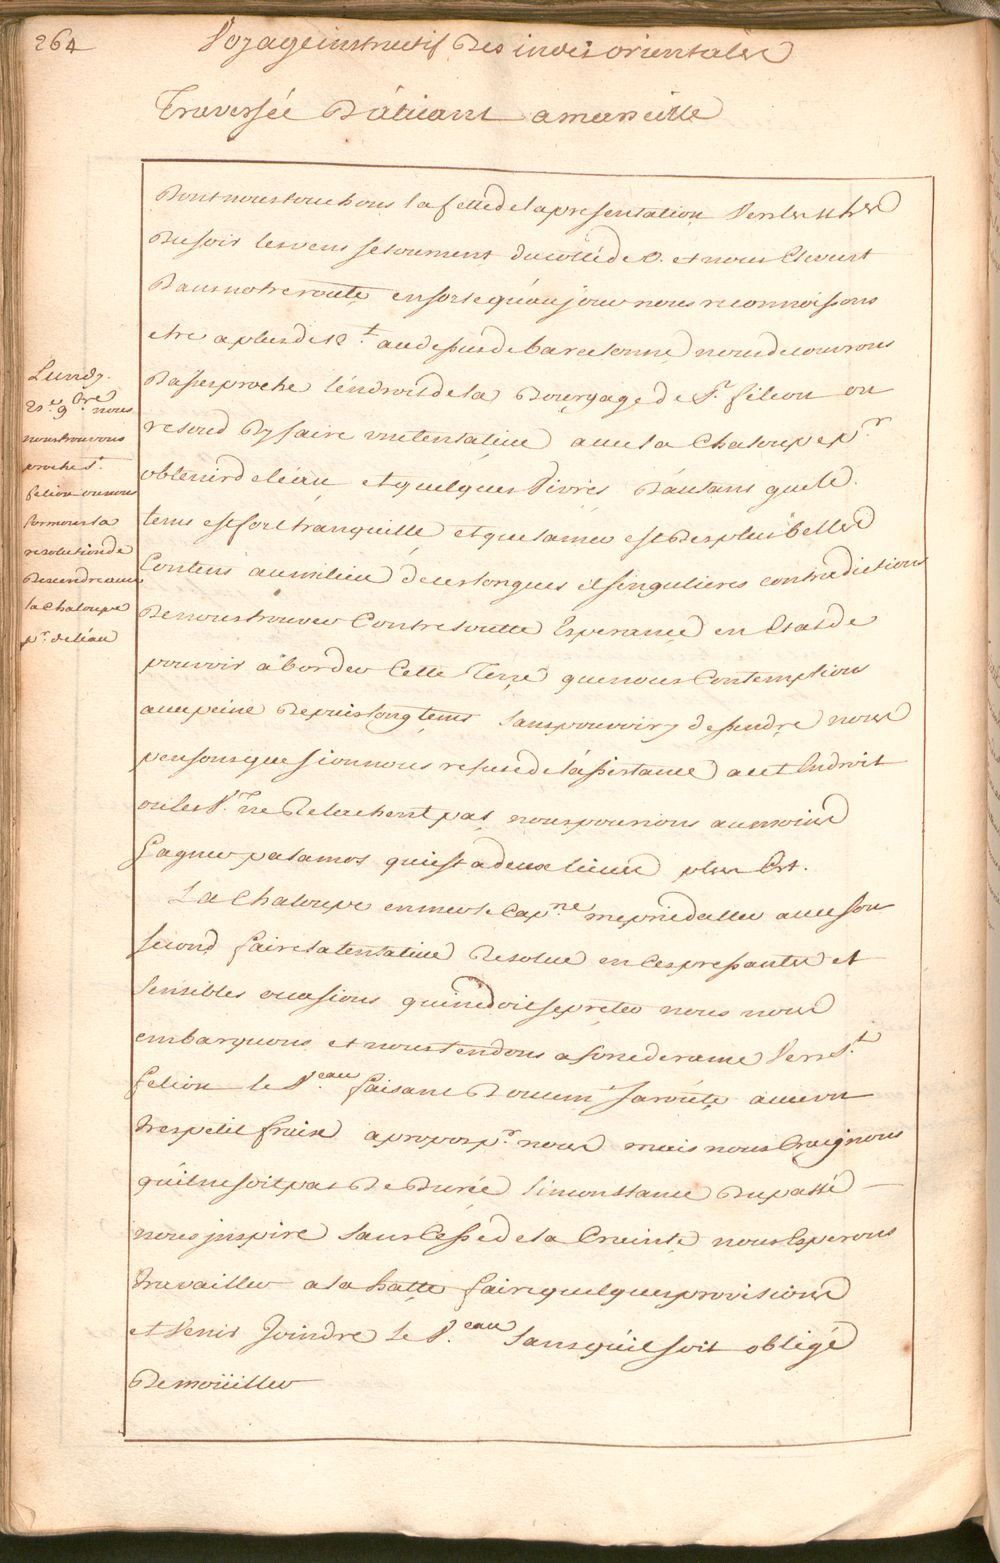 264
Voyage instructif Des indes orientales
Traversée D'alicant a marseille
Dont nous touchons la feste de la presentation Vers les 11 hes
Du soir les vens se tournent du costé de O. et nous Servent
Dans notre route en sorte qu'au jour nous reconnoissons
etre a plus de 12 t. au dessus de barcelonne nous decouvrons
Lundy.
23e. 9bre nous
nous trouvons
proche St.
feliou ou nous
formons la
resolution de
Descendre avec
la Chaloupe
pr. de l'eau
D'assés proche l'endroit de la Bourgage de St. feliou on
resoud D'y faire une tentative avec la Chaloupe pr
obtenir de l'eau et quelques Vivres D'autans que le
tems est fort tranquille et que la mer est Des plus belles
Contens au milieu de ces longues et singulieres contradictions
De nous trouver Contre toutte Esperance en Etat de
pouvoir aborder Cette Terre que nous Contemplions
avec peine Depuis longtems sans pouvoir y descendre nous
pensons que si on nous refuse de l'assistance a cet Endroit
ou les Vx ne Relachent pas nous pourions au moins
Gagner palamos qui est a deux lieues plus Est.
La Chaloupe en mer le Capne. me prie d'aller avec son
second faire la tentative Resolue en Ces pressantes et
sensibles occasions qui ne doit se preter nous nous
embarquons et nous tendons a force de rame Vers St.
feliou le Veau faisant De meme sa route avec un
tres petit frais a propos pr. nous mais nous Craignons
qu'il ne soit pas De Durée l'inconstance Du passé
nous inspire sans Cesse de la Crainte nous Esperons
travailler a la hatte faire quelques provisions
et Venir Joindre le Veau sans qu'il soit obligé
De moüiller